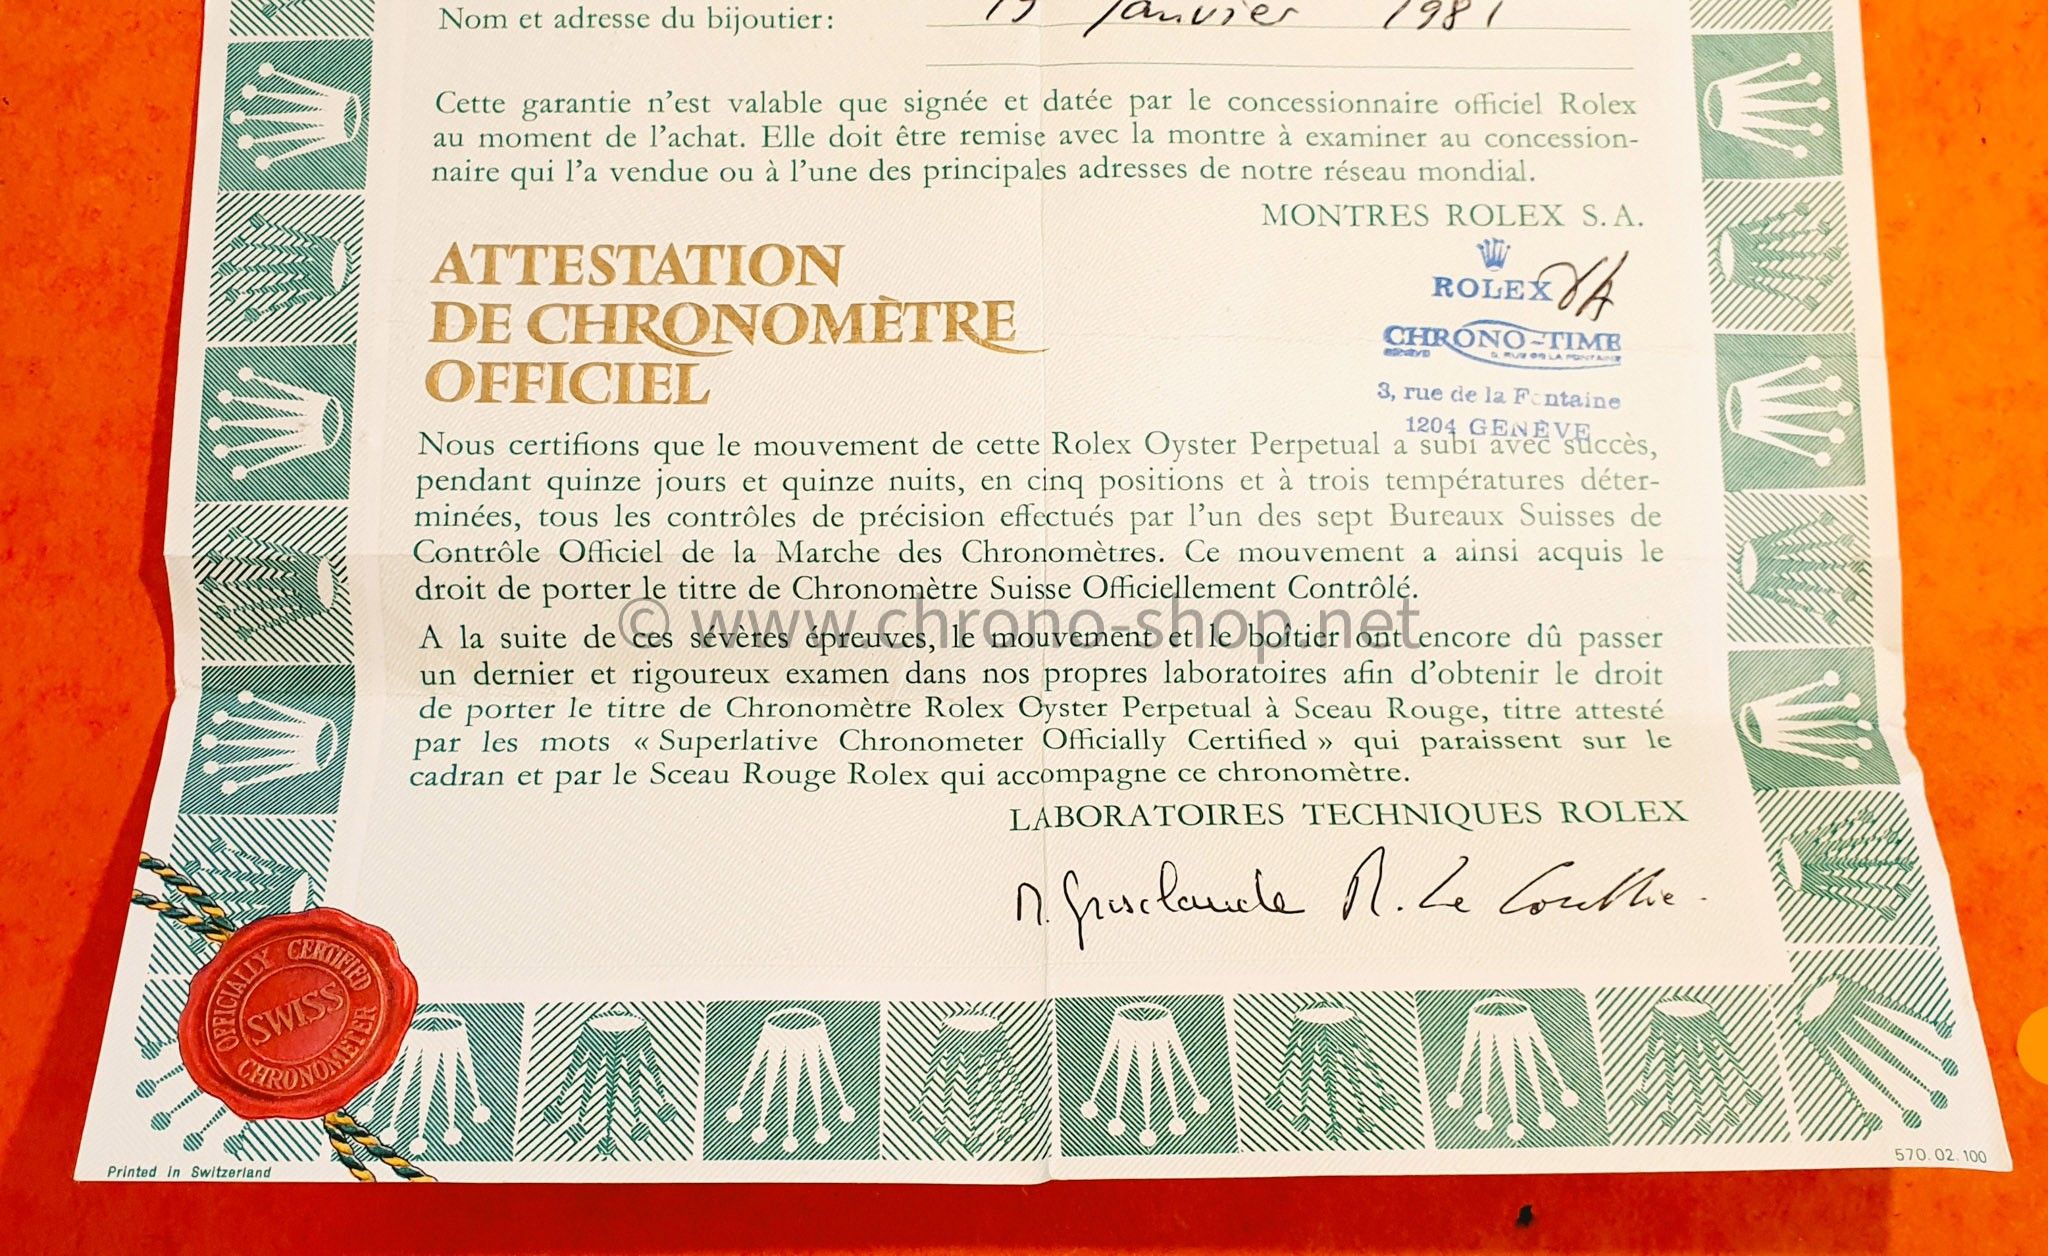 Nom et adresse du bijoutier: 19 janvier 1981
Cette garantie n'est valable que signée et datée par le concessionnaire officiel Rolex
au moment de l'achat. Elle doit être remise avec la montre à examiner au concession-
naire qui l'a vendue ou à l'une des principales adresses de notre réseau mondial.
MONTRES ROLEX S.A.
ROLEX
CHRONO-TIME
3, rue de la Fontaine
1204 GENÈVE
ATTESTATION
DE CHRONOMÈTRE
OFFICIEL
Nous certifions que le mouvement de cette Rolex Oyster Perpetual a subi avec succès,
pendant quinze jours et quinze nuits, en cinq positions et à trois températures déter-
minées, tous les contrôles de précision effectués par l'un des sept Bureaux Suisses de
Contrôle Officiel de la Marche des Chronomètres. Ce mouvement a ainsi acquis le
droit de porter le titre de Chronomètre Suisse Officiellement Contrôlé.
© www.chrono-shop.net
A la suite de ces sévères épreuves, le mouvement et le boîtier ont encore dû passer
un dernier et rigoureux examen dans nos propres laboratoires afin d'obtenir le droit
de porter le titre de Chronomètre Rolex Oyster Perpetual à Sceau Rouge, titre attesté
par les mots « Superlative Chronometer Officially Certified » qui paraissent sur le
cadran et par le Sceau Rouge Rolex qui accompagne ce chronomètre.
LABORATOIRES TECHNIQUES ROLEX
R. Le Coultre.
OFFICIALLY CERTIFIED
SWISS
CHRONOMETER
Printed in Switzerland
570.02.100